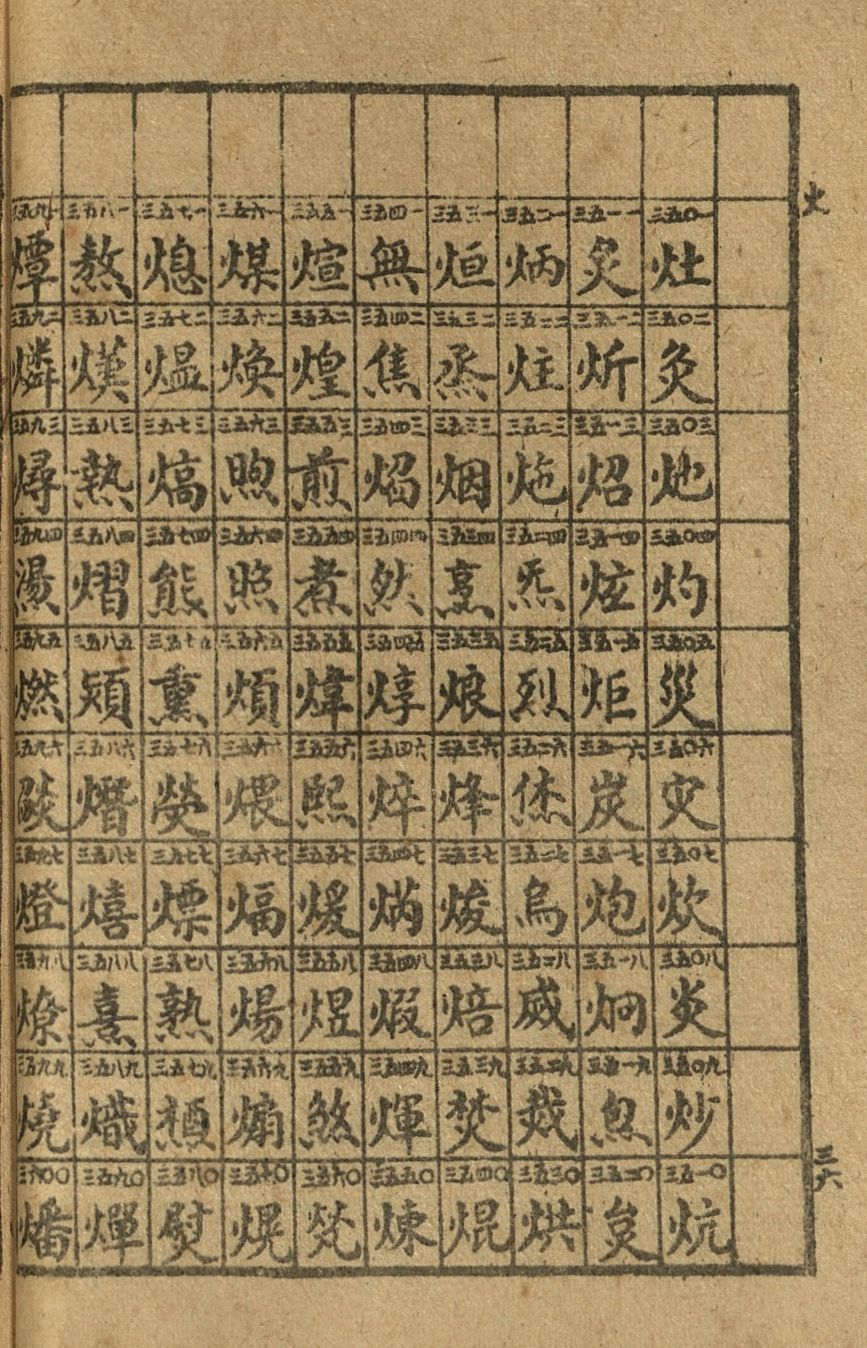 火
三五〇一 灶 三五〇二 灸 三五〇三 灺 三五〇四 灼 三五〇五 災 三五〇六 灾 三五〇七 炊 三五〇八 炎 三五〇九 炒 三五一〇 炕
三五一一 炙 三五一二 炘 三五一三 炤 三五一四 炫 三五一五 炬 三五一六 炭 三五一七 炮 三五一八 炯 三五一九 炰 三五二〇 炱
三五二一 炳 三五二二 炷 三五二三 炧 三五二四 炁 三五二五 烈 三五二六 烋 三五二七 烏 三五二八 烕 三五二九 烖 三五三〇 烘
三五三一 烜 三五三二 烝 三五三三 烟 三五三四 烹 三五三五 烺 三五三六 烽 三五三七 焌 三五三八 焙 三五三九 焚 三五四〇 焜
三五四一 無 三五四二 焦 三五四三 焰 三五四四 然 三五四五 焞 三五四六 焠 三五四七 焫 三五四八 煆 三五四九 煇 三五五〇 煉
三五五一 煊 三五五二 煌 三五五三 煎 三五五四 煮 三五五五 煒 三五五六 熙 三五五七 煖 三五五八 煜 三五五九 煞 三五六〇 煢
三五六一 煤 三五六二 煥 三五六三 煦 三五六四 照 三五六五 煩 三五六六 煨 三五六七 煏 三五六八 煬 三五六九 煽 三五七〇 熀
三五七一 熄 三五七二 熅 三五七三 熇 三五七四 熊 三五七五 熏 三五七六 熒 三五七七 熛 三五七八 熟 三五七九 三五八〇 熨
三五八一 熬 三五八二 熯 三五八三 熱 三五八四 熠 三五八五 熲 三五八六 熸 三五八七 熺 三五八八 熹 三五八九 熾 三五九〇 燀
三五九一 燂 三五九二 燐 三五九三 燖 三五九四 燙 三五九五 燃 三五九六 燄 三五九七 燈 三五九八 燎 三五九九 燒 三六〇〇 燔
三六